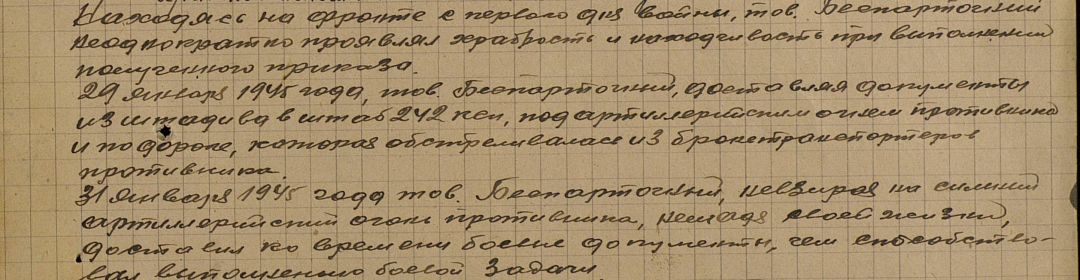 Находясь на фронте с первого дня войны, тов. Беспарточный
неоднократно проявлял храбрость и находчивость при выполнении
полученного приказа.
29 января 1945 года, тов. Беспарточный, доставляя документы
из штадива в штаб 242 ксп, под артиллерийским огнем противника
и по дороге, которая обстреливалась из бронетранспортеров
противника.
31 января 1945 года тов. Беспарточный, невзирая на сильный
артиллерийский огонь противника, нещадя своей жизни,
доставил ко времени боевые документы, чем способство-
вал выполнению боевой задачи.